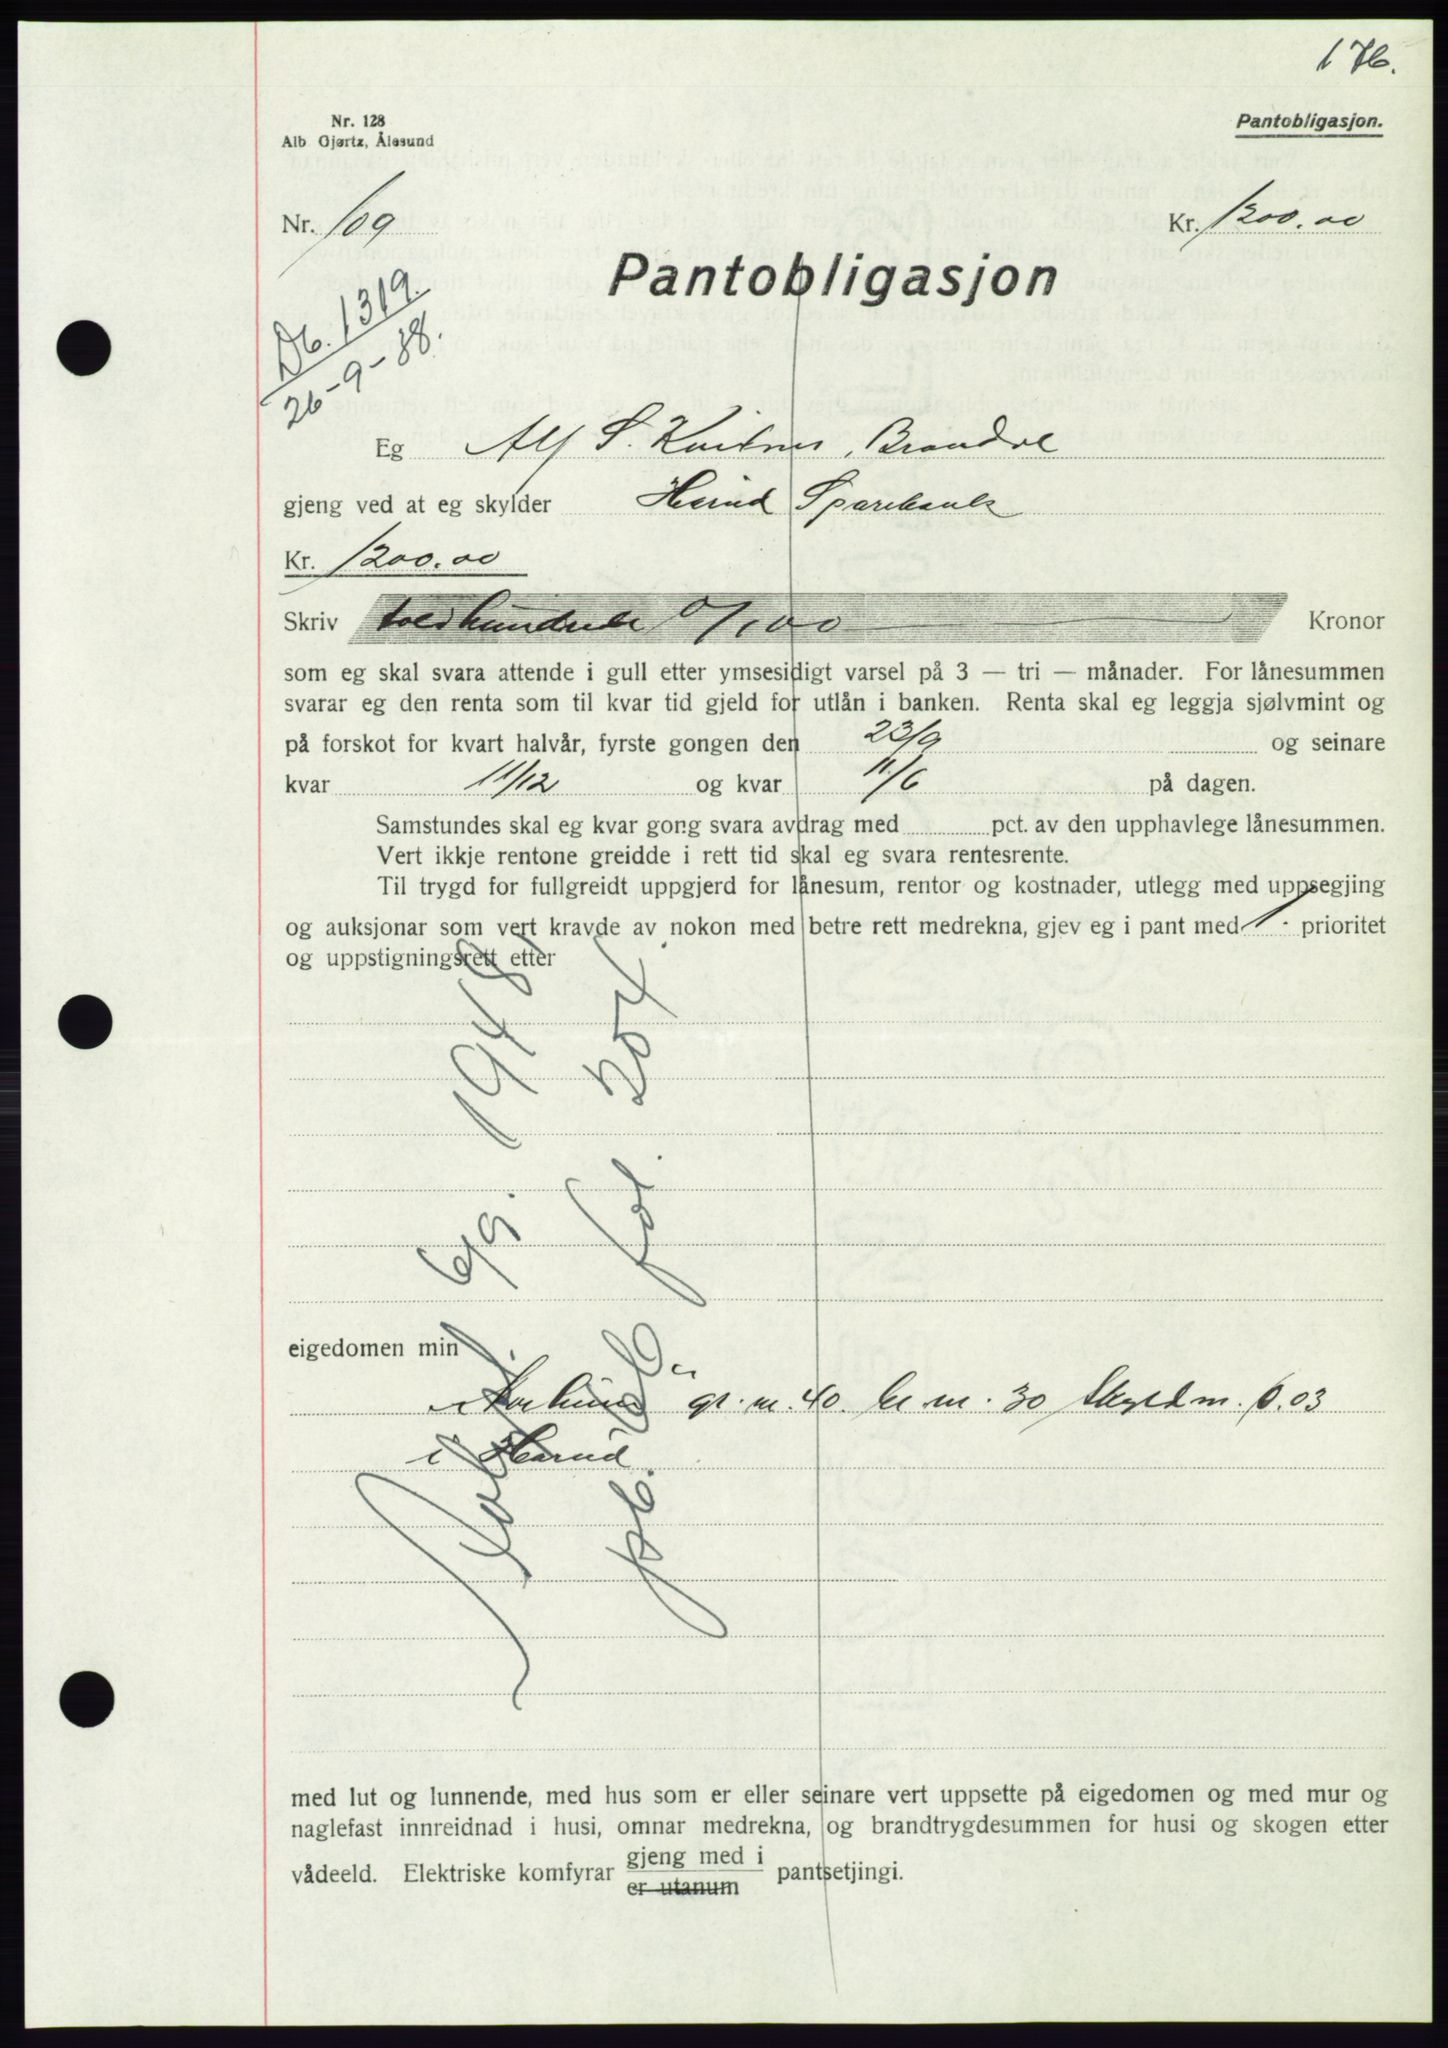 176.
Nr. 128
Alb Gjørtz, Ålesund
Pantobligasjon.
Nr. 109
Kr. 1200.00
Pantobligasjon
Db. 1319.
26-9-38.
Eg Alf S. Brandal
gjeng ved at eg skylder Hareid Sparebank
Kr. 1200.00
Skriv tolvhundrede 0/100 Kronor
som eg skal svara attende i gull etter ymsesidigt varsel på 3 — tri — månader. For lånesummen
svarar eg den renta som til kvar tid gjeld for utlån i banken. Renta skal eg leggja sjølvmint og
på forskot for kvart halvår, fyrste gongen den 23/9 og seinare
kvar 11/12 og kvar 11/6 på dagen.
Samstundes skal eg kvar gong svara avdrag med pct. av den upphavlege lånesummen.
Vert ikkje rentone greidde i rett tid skal eg svara rentesrente.
Til trygd for fullgreidt uppgjerd for lånesum, rentor og kostnader, utlegg med uppsegjing
og auksjonar som vert kravde av nokon med betre rett medrekna, gjev eg i pant med 1. prioritet
og uppstigningsrett etter
eigedomen min
gr. nr. 40. br. nr. 30 Skyld m. 0.03
i Hareid
6/9. 1948,
pb. fol. 204.
med lut og lunnende, med hus som er eller seinare vert uppsette på eigedomen og med mur og
naglefast innreidnad i husi, omnar medrekna, og brandtrygdesummen for husi og skogen etter
vådeeld. Elektriske komfyrar gjeng med i pantsetjingi.
er utanum